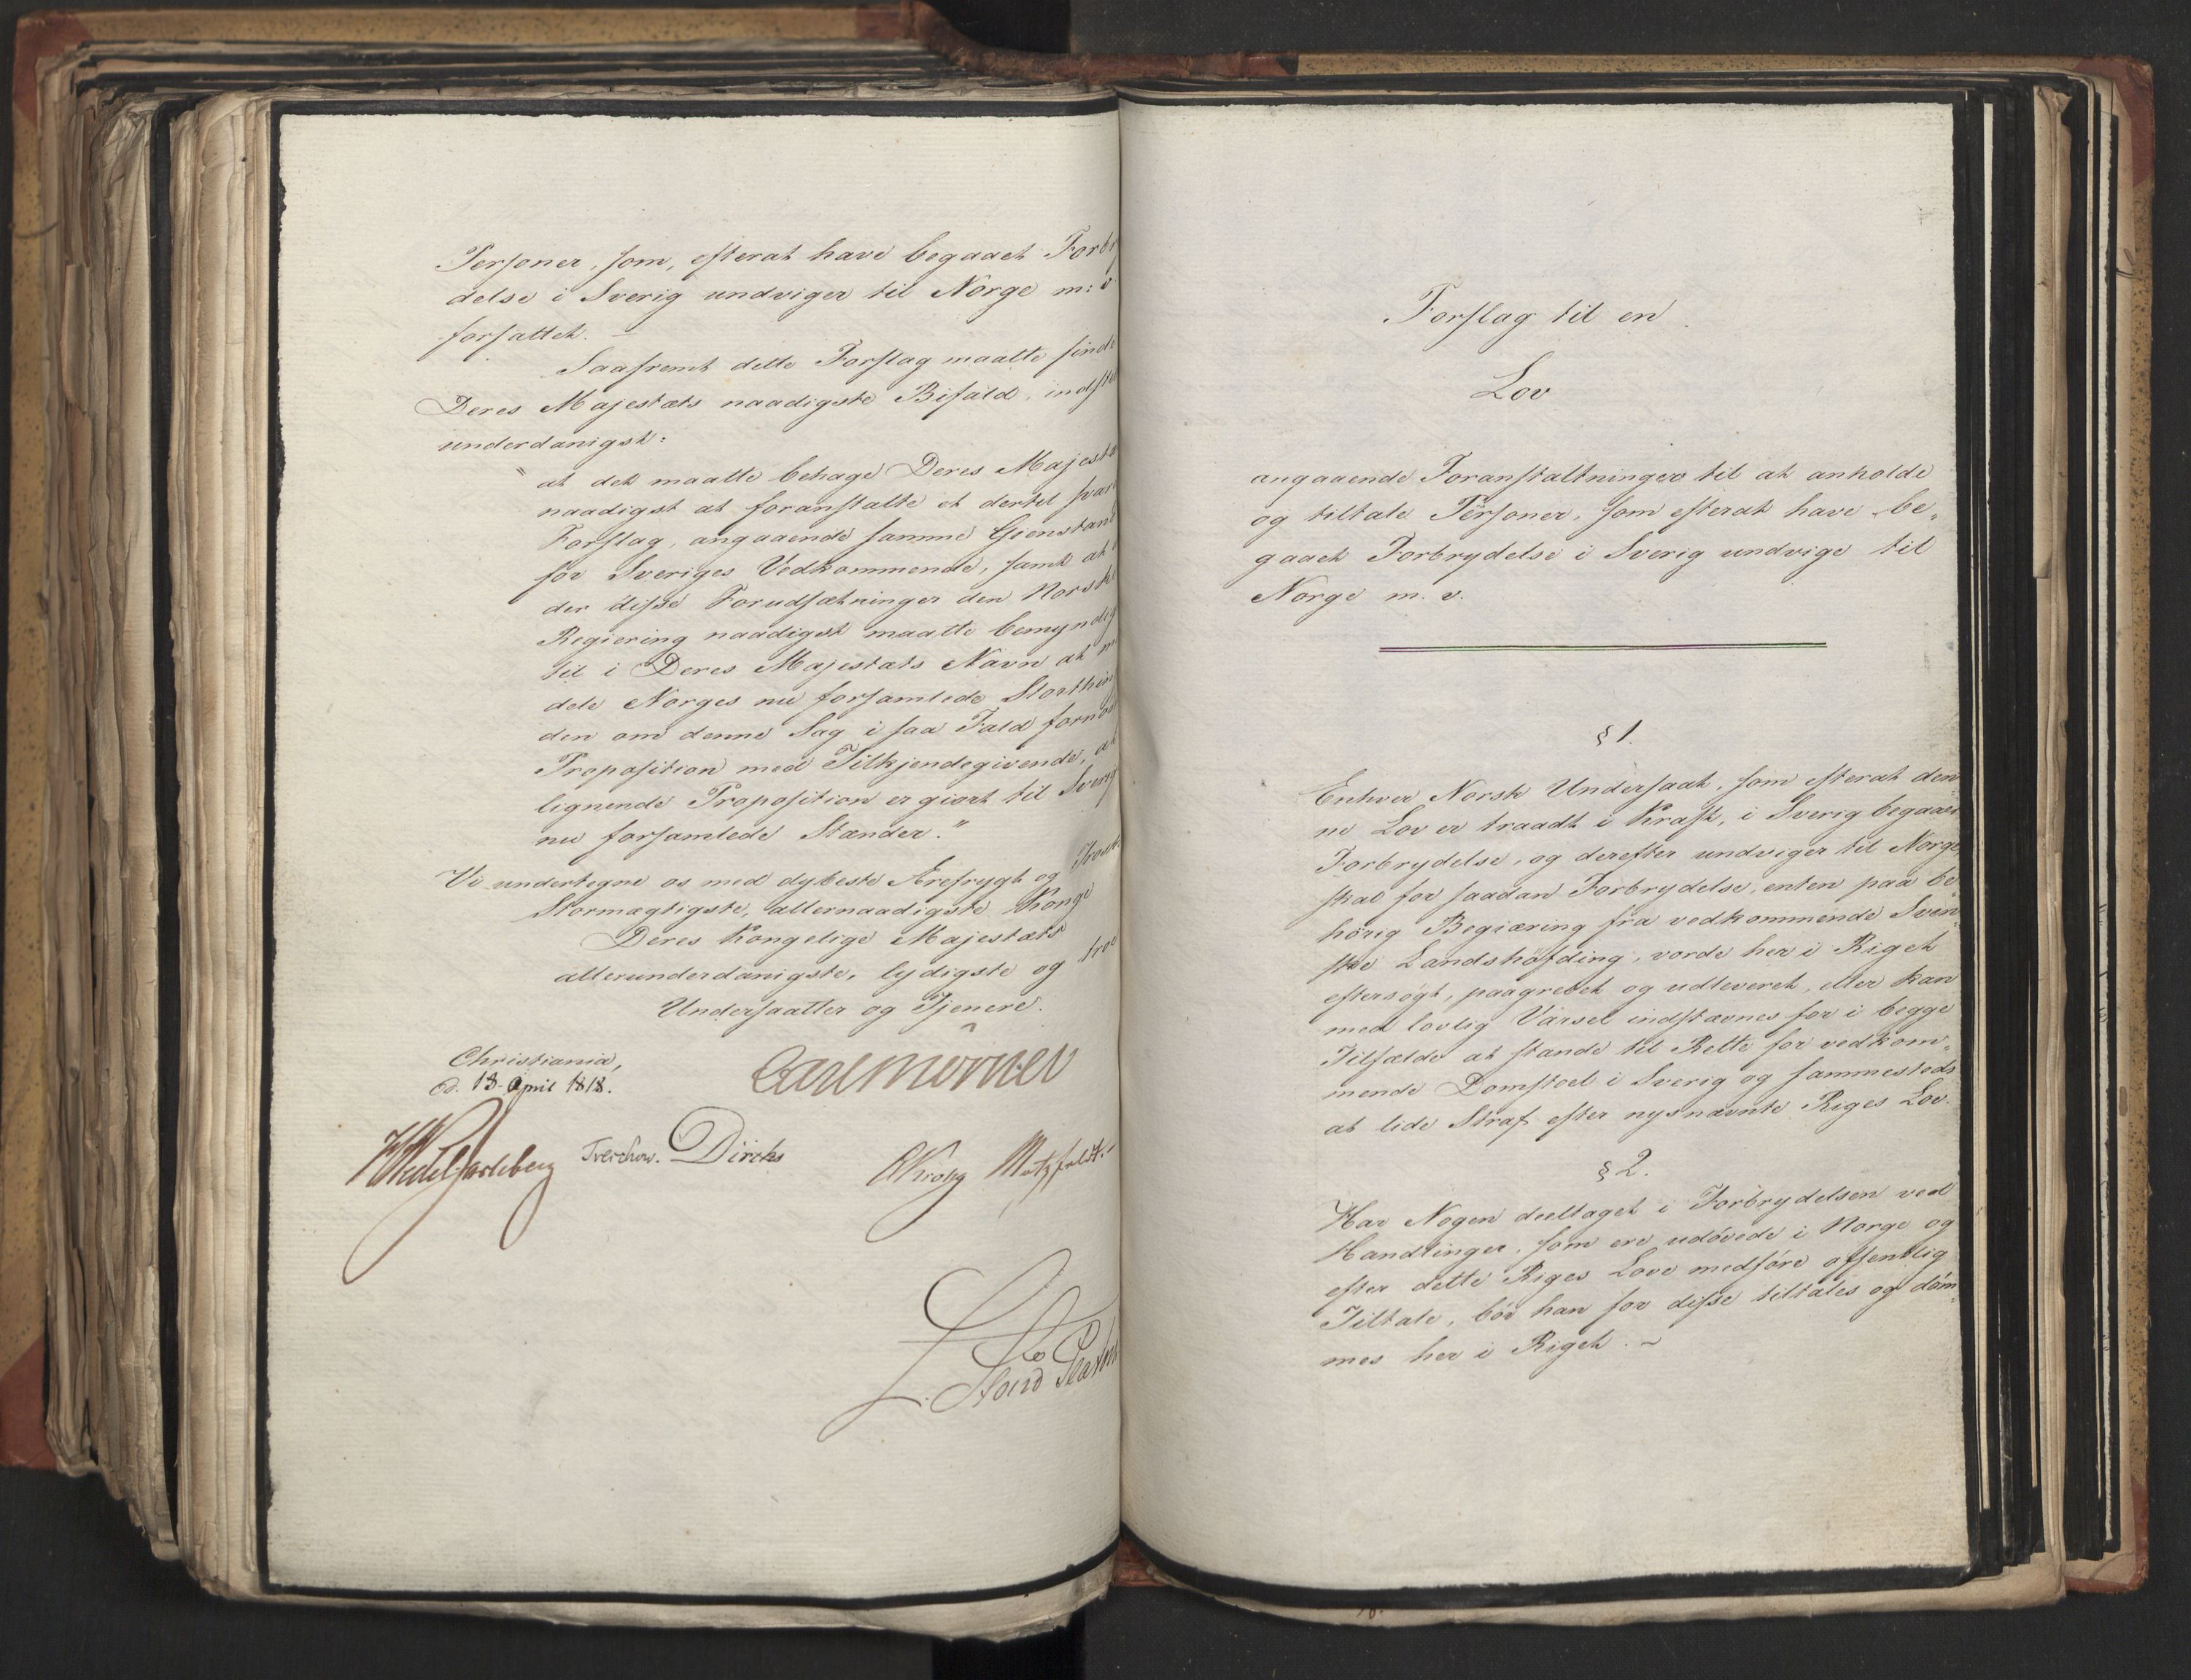 Personer, som, efterat have begaaet Forbr
delse i Sverig undviger til Norge m: v
forfattet. –
Saafremt dette Forslag maatte finde
Deres Majestæts naadigste Bifald, indstil
underdanigst:
" at det maatte behage Deres Majestæ
naadigst at foranstalte et dertil svar
Forslag, angaaende samme Gienstand
for Sveriges Vedkommende, samt at
der disse Forudsætninger den Norske
Regiering naadigst maatte bemyndig
til i Deres Majestæts Navn at
dele Norges nu forsamlede Storthin
den om denne Sag i saa Fald fornød
Proposition med Tilkjendegivende, at
lignende Proposition er giort til Sverig
nu forsamlede Stænder."
Vi undertegne os med dybeste Ærefrygt og Trosk
Stormægtigste, allernaadigste Konge
Deres Kongelige Majestæts
allerunderdanigste, lydigste og troe
Undersaatter og Tjenere.
Christiania,
d. 13 April 1818.
Carl Mörner
HWedelJarlsberg Treschow. Diriks Krogh Motzfeldt.
Forslag til en
Lov
angaaende Foranstaltninger til at anholde
og tiltale Personer, som efterat have be„
gaaet Forbrydelse i Sverig undvige til
Norge m. v.
§ 1.
Enhver Norsk Undersaat, som efterat den„
ne Lov er traadt i Kraft, i Sverig begaaer
Forbrydelse, og derefter undviger til Norge,
skal for saadan Forbrydelse, enten paa be„
hörig Begiæring fra vedkommende Sven„
ske Landshöfding, vorde her i Riget
eftersögt, paagrebet og udleveret, eller kan
med lovlig Varsel indstævnes for i begge
Tilfælde at stande til Rette for vedkom„
mende Domstoel i Sverig og sammesteds
at lide Straf efter nysnævnte Riges Lov.
§ 2.
Har Nogen deeltaget i Forbrydelsen ved
Handlinger, som ere udövede i Norge og
efter dette Riges Love medföre offentlig
Tiltale, bör han for disse tiltales og döm„
mes her i Riget. –